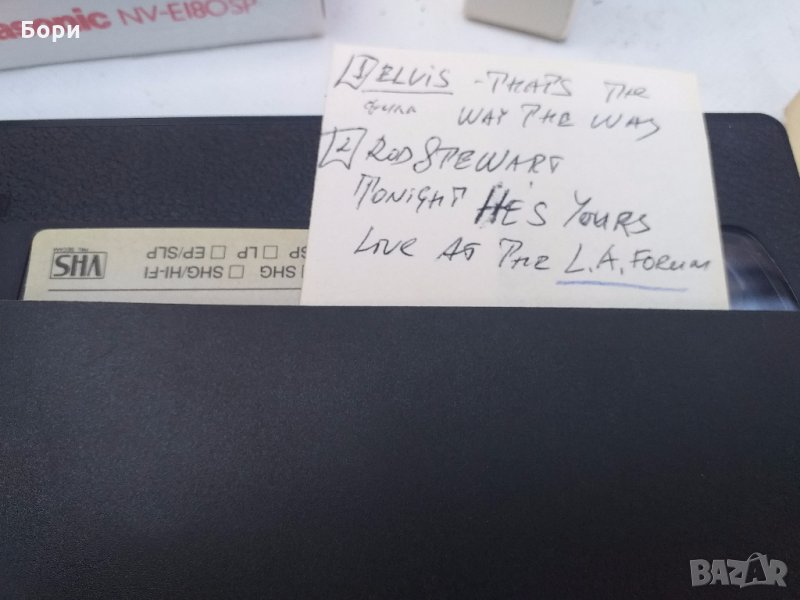 Бори
asonic NV-E180SP
1 ELVIS - THATS THE
филм WAY THE WAY
2 ROD STEWART
TONIGHT HE'S YOURS
LIVE AT THE L.A. FORUM
VHS
PAL SECAM
SHG/HI-FI
EP/SLP
SHG
SP LP
BAZAR